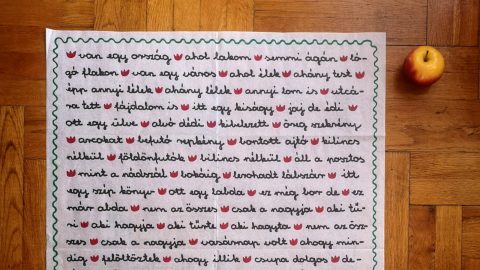 van egy ország ahol lakom semmi ágán ló-
gó flakon van egy város ahol élek ahány test
épp annyi lélek ahány lélek annyi lom is utcá-
ra tett fájdalom is itt egy kiságy jaj de édi
ott egy ülve alvó dédi kibelezett öreg szekrény
arcokat befutó repkény bontott ajtó kilincs
nélkül földönfutók bilincs nélkül áll a posztos
mint a nádszál bokáig lerohadt lábszár itt
egy szép könyv ott egy labda ez még bor de ez
már abda nem az összes csak a nagyja aki tű-
ri aki hagyja aki tűrte aki hagyta nem az ösz-
szes csak a nagyja vasárnap volt ahogy min-
dig felöltöztek ahogy illik csupa dolgos de-